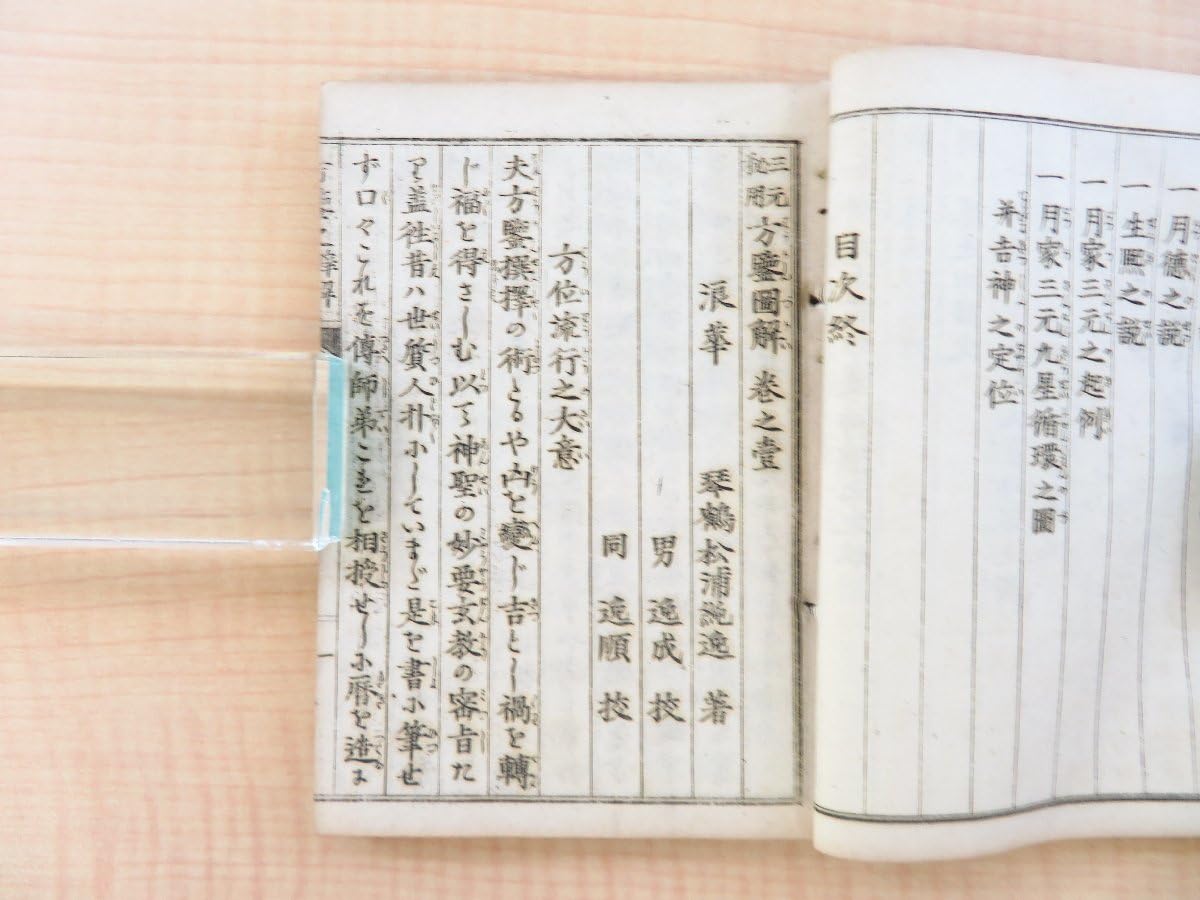 一 月德之説
一 生炁之説
一 月家三元之起例
一 月家三元九星循環之圖
并吉神之定位
目次終
三元秘用方鑒圖解 卷之壹
浪華 琴鶴松浦純逸 著
男 逸成 挍
同 逸順 挍
方位流行之大意
夫方鑒撰擇の術とるや凶を變じ吉とし禍を轉
じ福を得さしむ以て神聖の妙要玄教の審旨た
り蓋往昔ハ世質人朴にしていまだ是を書に筆せ
ず口々これを傳師弟こまを相授せしに厝を造ま